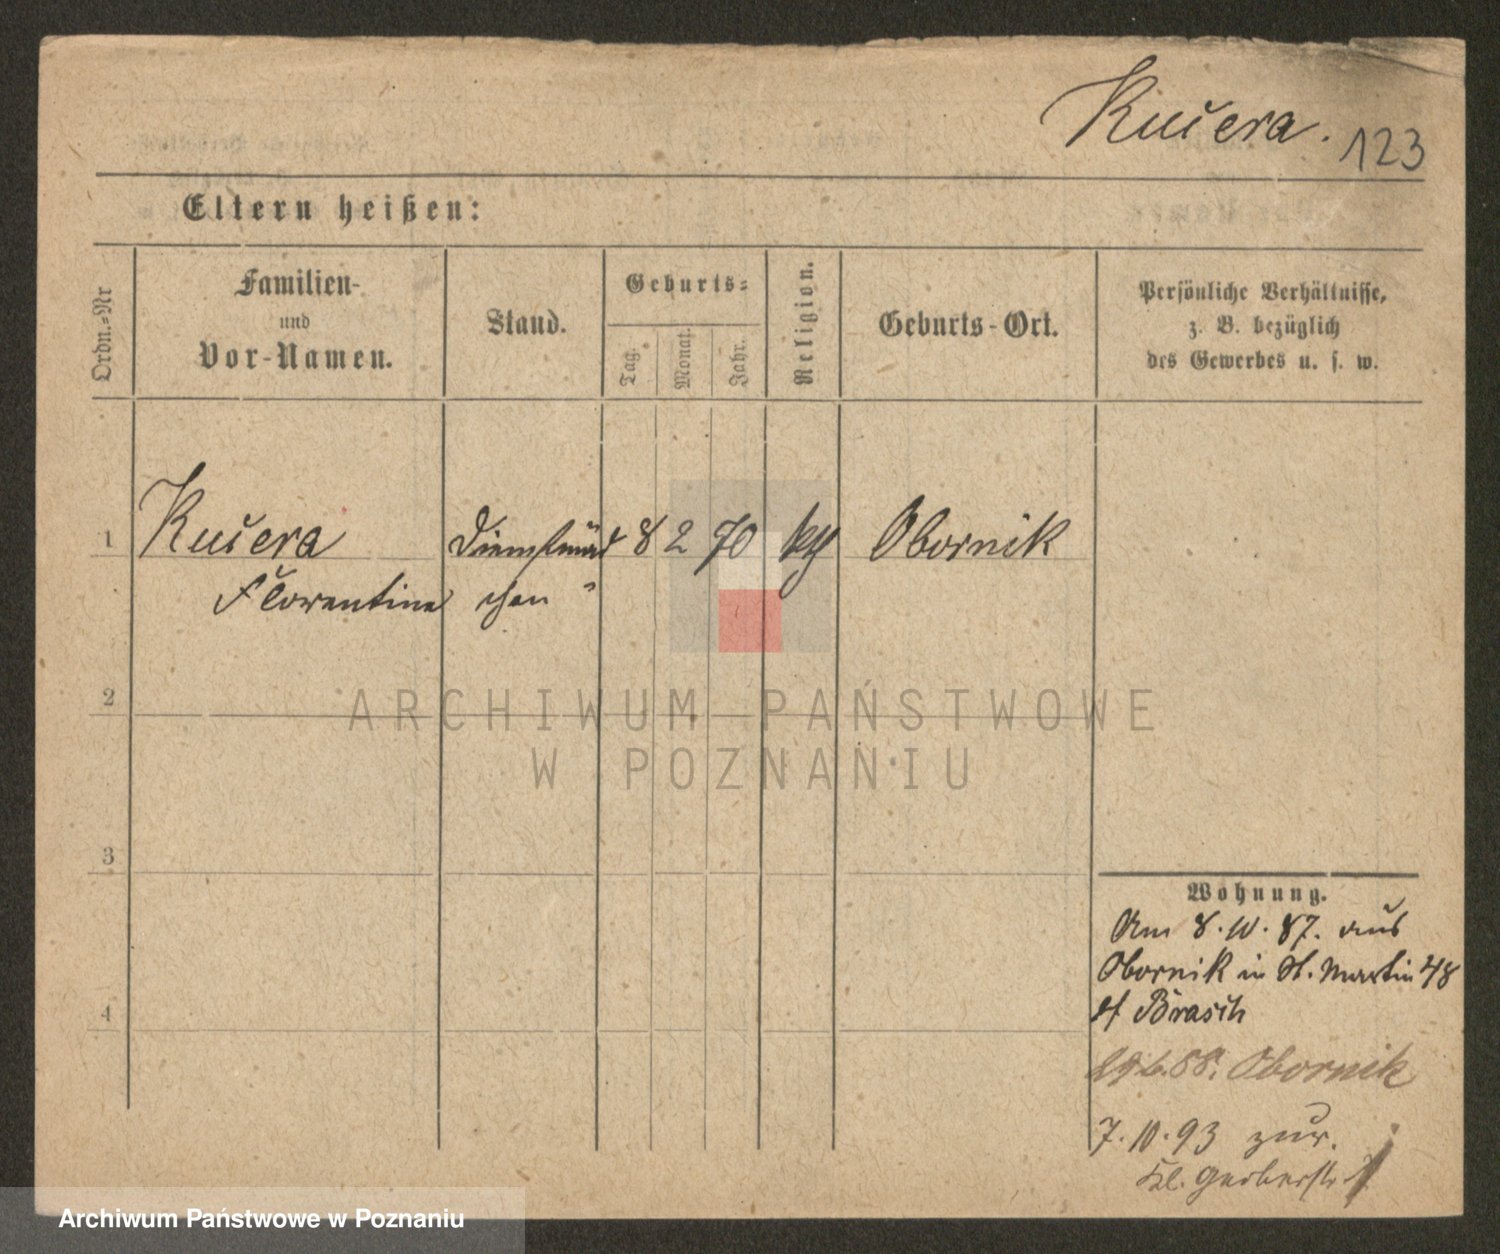 Kučera.
123
Eltern heißen:
Ordn.=Nr
Familien-
und
Vor-Namen.
Stand.
Geburts=
Tag.
Monat.
Jahr.
Religion.
Geburts-Ort.
Persönliche Verhältnisse,
z. B. bezüglich
des Gewerbes u. s. w.
1 Kučera Dienstmäd 8 2 70 Obornik
Florentine chen
2
ARCHIWUM PAŃSTWOWE
W POZNANIU
3
4
Wohnung.
Am 8.10.87. aus
Obornik in St. Martin 48
Brasch
Obornik
7.10.93 zur.
Kl. Gerberstr.
Archiwum Państwowe w Poznaniu